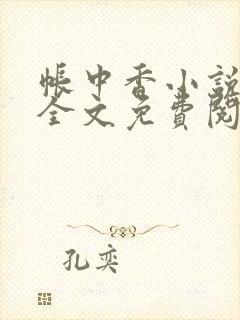 帳中香小說
全文免費閱
孔奕